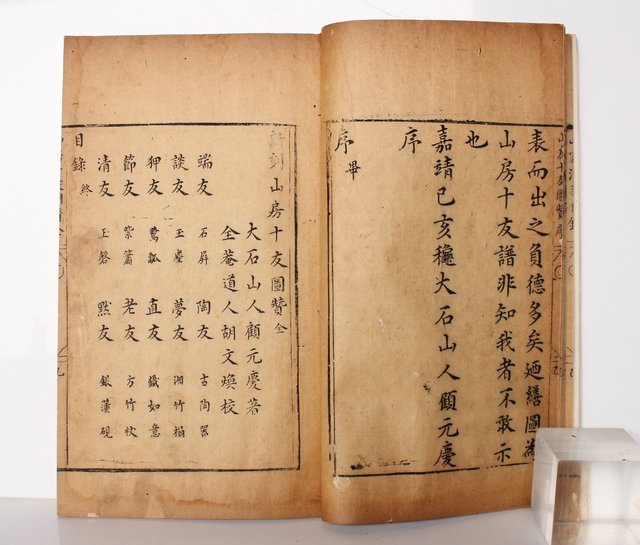 表而出之負德多矣廼繕圖為
山房十友譜非知我者不敢示
也
嘉靖己亥穐大石山人顧元慶
序
序畢
新刻山房十友圖贊全
大石山人顧元慶著
全菴道人胡文煥校
端友 石屏 陶友 古陶器
談友 玉麈 夢友 湘竹榻
狎友 鷺瓢 直友 鐵如意
節友 紫簫 老友 方竹杖
清友 玉磬 默友 銀潢硯
目錄終